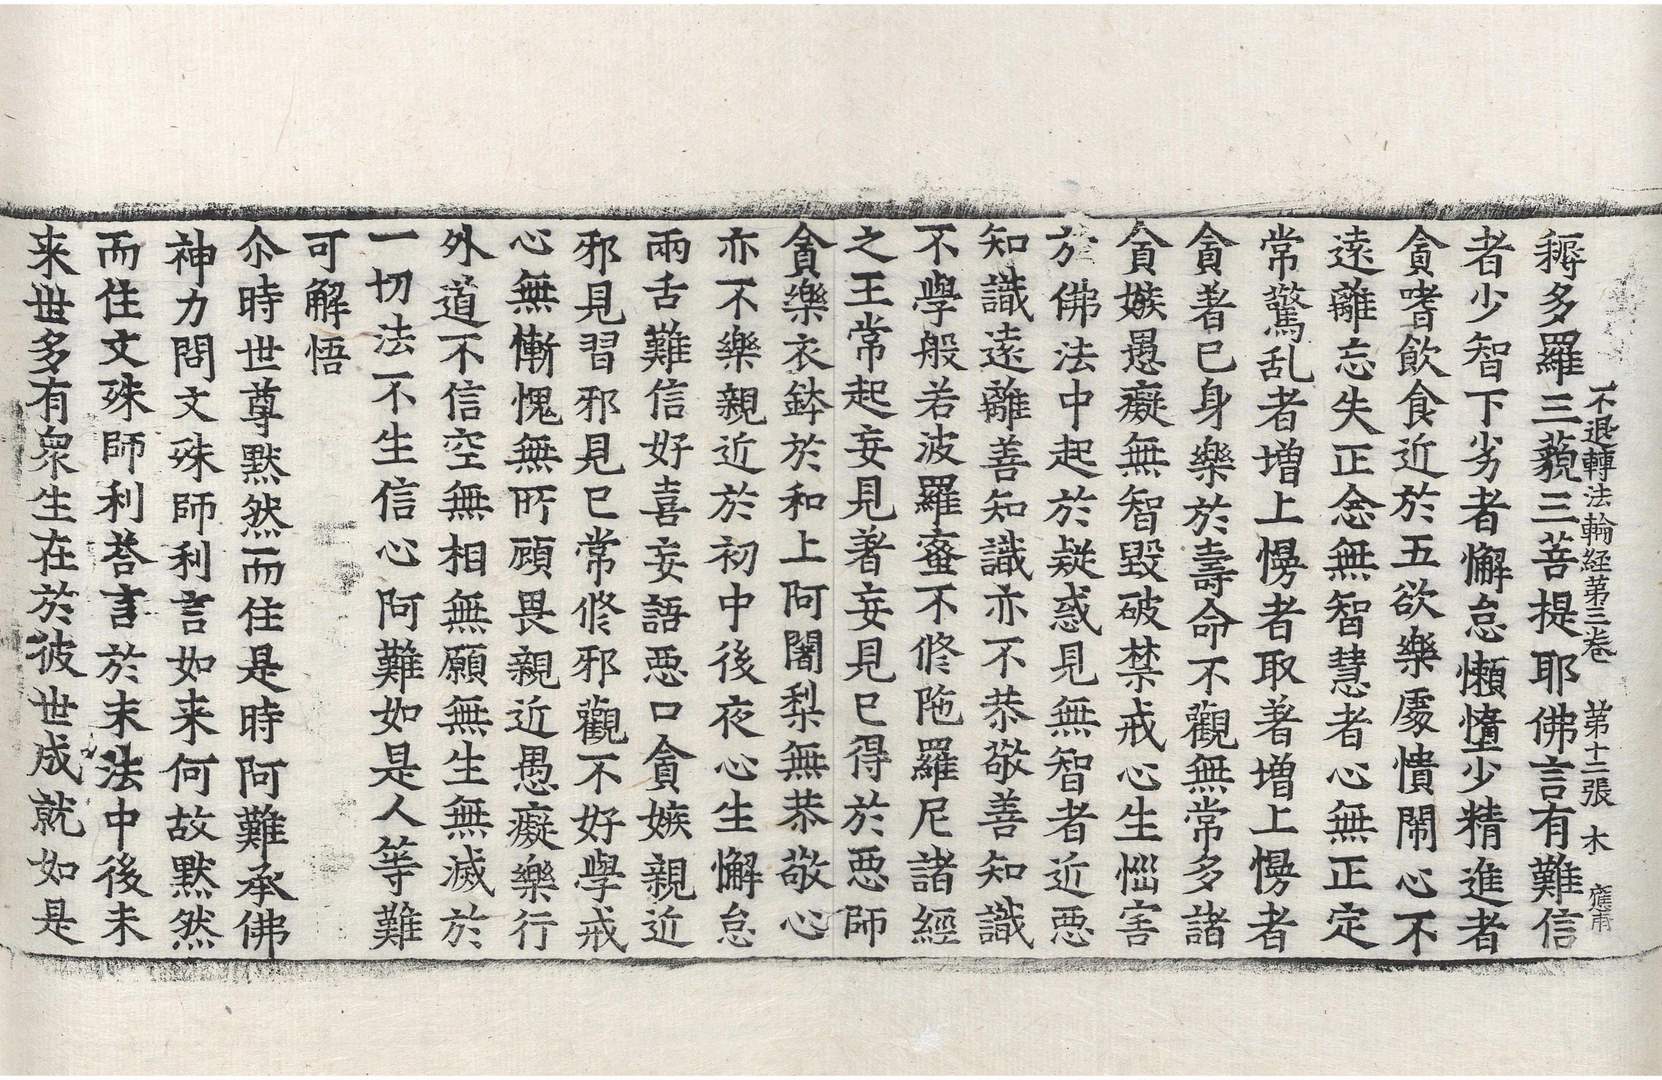 不退轉法輪経第三卷　第十二張　木　應甫
耨多羅三藐三菩提耶佛言有難信
者少智下劣者懈怠懶墮少精進者
貪嗜飲食近於五欲樂處憒閙心不
遠離忘失正念無智慧者心無正定
常驚乱者增上慢者取著增上慢者
貪著已身樂於壽命不觀無常多諸
貪嫉愚癡無智毀破禁戒心生惱害
於佛法中起於疑惑見無智者近惡
知識遠離善知識亦不恭敬善知識
不學般若波羅蜜不修陁羅尼諸經
之王常起妄見著妄見已得於惡師
貪樂衣鉢於和上阿闍梨無恭敬心
亦不樂親近於初中後夜心生懈怠
兩舌難信好喜妄語惡口貪嫉親近
邪見習邪見已常修邪觀不好學戒
心無慚愧無所顧畏親近愚癡樂行
外道不信空無相無願無生無滅於
一切法不生信心阿難如是人等難
可解悟
尒時世尊默然而住是時阿難承佛
神力問文殊師利言如来何故默然
而住文殊師利荅言於末法中後未
来世多有衆生在於彼世成就如是